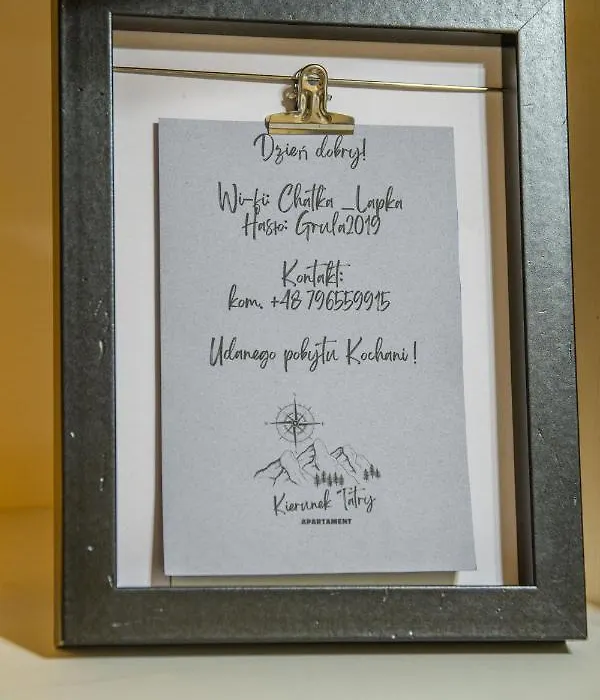 Dzień dobry!
Wi-fi: Chatka _Lapka
Hasło: Grula2019
Kontakt:
kom. +48 796559915
Udanego pobytu Kochani!
Kierunek Tatry
APARTAMENT